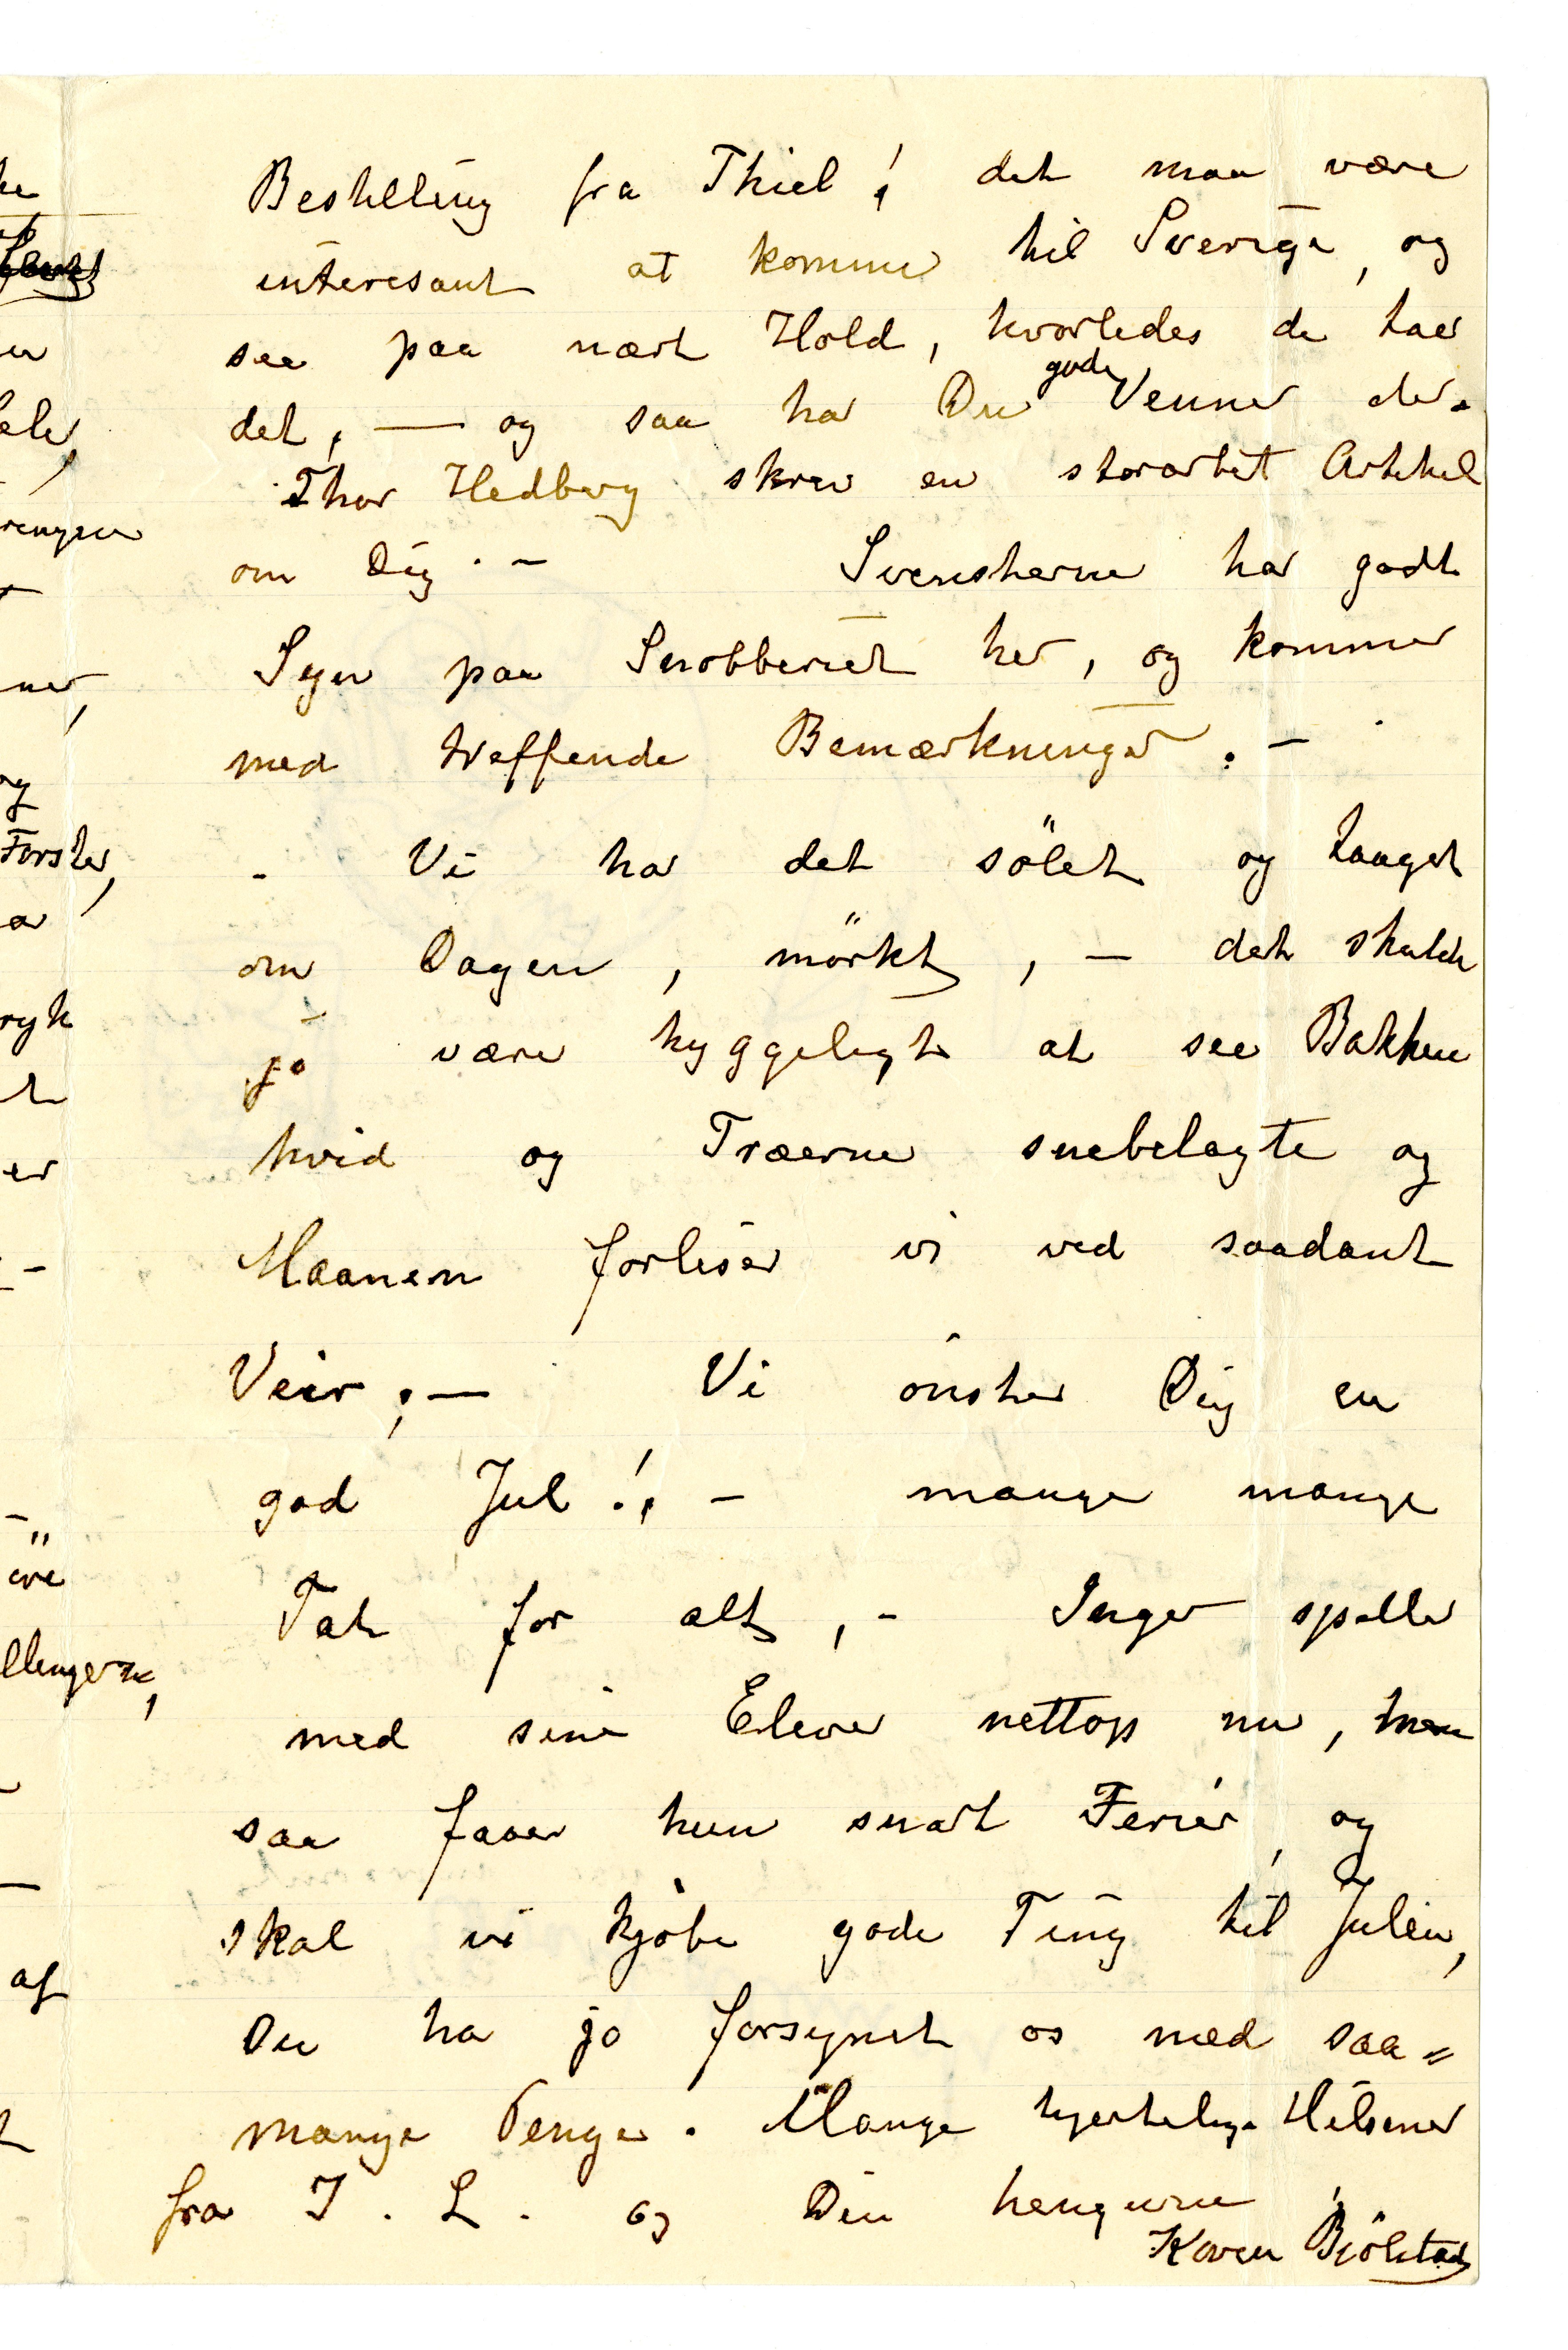 Bestilling fra Thiel! det maa være
interesant at komme til Sverige, og
see paa nært Hold, hvorledes de har
det, — og saa har Du gode Venner der.
Thor Hedberg skrev en storartet Artikel
om Dig. – Svenskerne har godt
Syn paa Snobberiet her, og kommer
med træffende Bemærkninger. –
– Vi har det sölet og taaget
om Dagen, mörkt, – det skulde
jo være hyggeligt at see Bakken
hvid og Træerne snebelagte og
Maanen forliser vi ved saadant
Veir; – Vi önsker Dig en
god Jul!, – mange mange
Tak for alt, – Inger spiller
med sine Elever nettop nu, men
saa faaer hun snart Ferier, og
skal vi kjöbe gode Ting til Julen,
Du har jo forsynet os med saa=
mange Penge. Mange hjertelige Hilsener
fra I. L. og Din hengivne
Karen Bjölstad